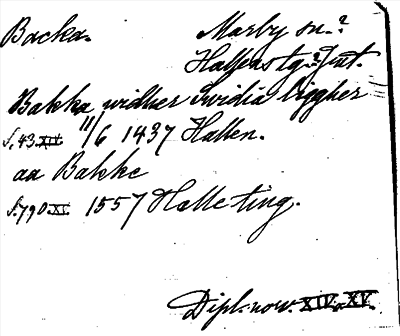 Backa. Marby sn.?
Hallens tg.? Jmt.
Bakka widher Swidia liggher
s.43 XIV 11/6 1437 Hallen.
aa Bakke
s.790 XV 1557 Halle ting.
Dipl. now. XIV. XV.